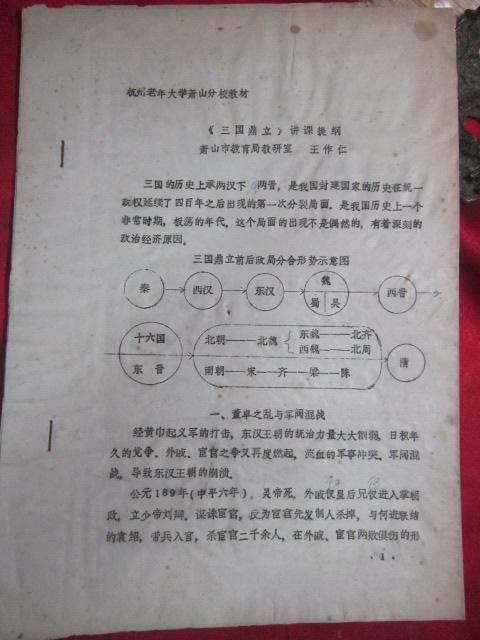 杭州老年大学萧山分校教材
《三国鼎立》讲课提纲
萧山市教育局教研室　王作仁
三国的历史上承两汉下 两晋，是我国封建国家的历史在统一
政权延续了四百年之后出现的第一次分裂局面。是我国历史上一个
非常时期，板荡的年代。这个局面的出现不是偶然的，有着深刻的
政治经济原因。
三国鼎立前后政局分合形势示意图
秦 西汉 东汉 魏 蜀 吴 西晋
十六国 东晋
北朝——北魏 东魏——北齐
西魏——北周
南朝——宋——齐——梁——陈
一、董卓之乱与军阀混战
经黄巾起义军的打击，东汉王朝的统治力量大大削弱，日积年
久的党争、外戚、宦官之争又再度燃起，流血的军事冲突、军阀混
战，导致东汉王朝的崩溃。
公元189年（中平六年），灵帝死，外戚 皇后兄 进入掌朝
政，立少帝刘辩。谋诛宦官，反为宦官先发制人杀掉，与何进联结
的袁绍，带兵入宫，杀宦官二千余人，在外戚、宦官两败俱伤的形
·1·